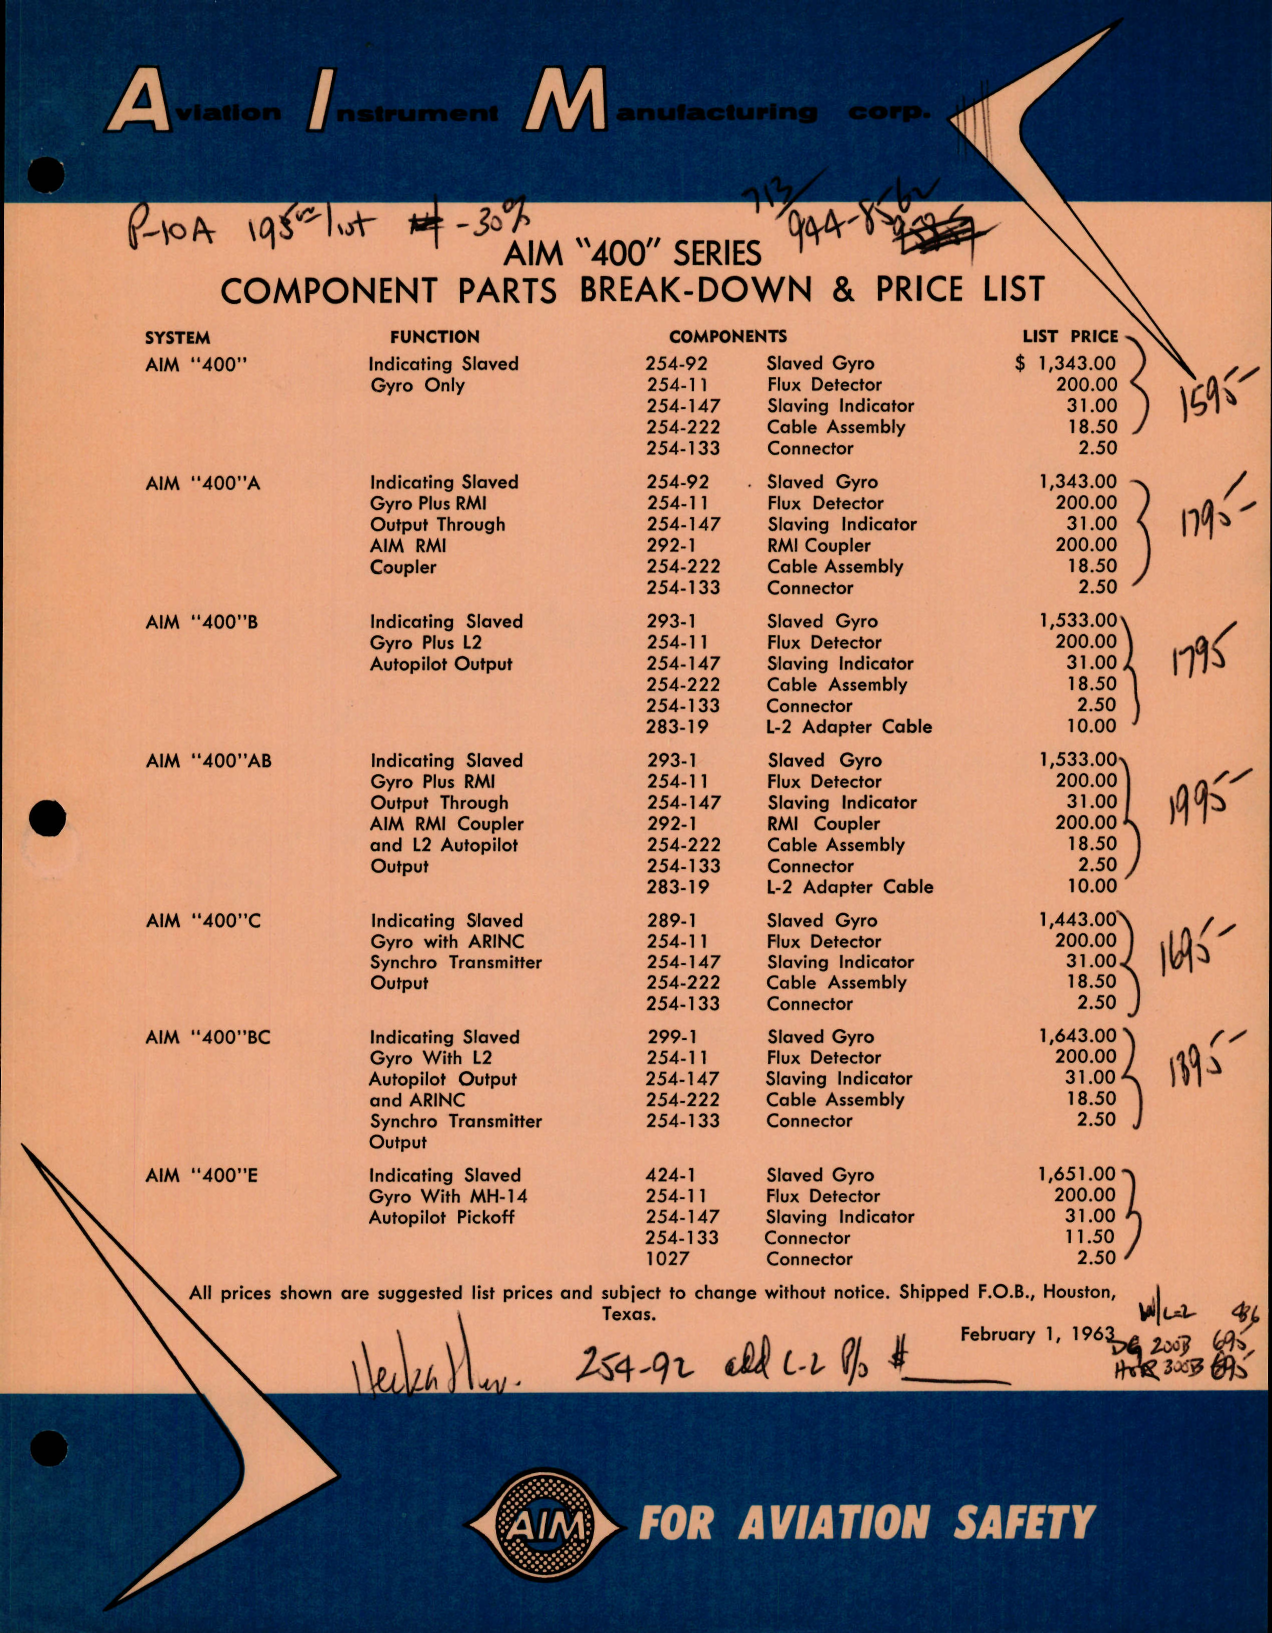 Aviation Instrument Manufacturing corp.
P-10A 195⁰⁰ list -30%
713/
944-8562
AIM "400" SERIES
COMPONENT PARTS BREAK-DOWN & PRICE LIST
SYSTEM FUNCTION COMPONENTS LIST PRICE
AIM "400" Indicating Slaved 254-92 Slaved Gyro $ 1,343.00
Gyro Only 254-11 Flux Detector 200.00
254-147 Slaving Indicator 31.00 1595
254-222 Cable Assembly 18.50
254-133 Connector 2.50
AIM "400"A Indicating Slaved 254-92 Slaved Gyro 1,343.00
Gyro Plus RMI 254-11 Flux Detector 200.00
Output Through 254-147 Slaving Indicator 31.00 1795
AIM RMI 292-1 RMI Coupler 200.00
Coupler 254-222 Cable Assembly 18.50
254-133 Connector 2.50
AIM "400"B Indicating Slaved 293-1 Slaved Gyro 1,533.00
Gyro Plus L2 254-11 Flux Detector 200.00
Autopilot Output 254-147 Slaving Indicator 31.00 1795
254-222 Cable Assembly 18.50
254-133 Connector 2.50
283-19 L-2 Adapter Cable 10.00
AIM "400"AB Indicating Slaved 293-1 Slaved Gyro 1,533.00
Gyro Plus RMI 254-11 Flux Detector 200.00
Output Through 254-147 Slaving Indicator 31.00 1995
AIM RMI Coupler 292-1 RMI Coupler 200.00
and L2 Autopilot 254-222 Cable Assembly 18.50
Output 254-133 Connector 2.50
283-19 L-2 Adapter Cable 10.00
AIM "400"C Indicating Slaved 289-1 Slaved Gyro 1,443.00
Gyro with ARINC 254-11 Flux Detector 200.00
Synchro Transmitter 254-147 Slaving Indicator 31.00 1695
Output 254-222 Cable Assembly 18.50
254-133 Connector 2.50
AIM "400"BC Indicating Slaved 299-1 Slaved Gyro 1,643.00
Gyro With L2 254-11 Flux Detector 200.00
Autopilot Output 254-147 Slaving Indicator 31.00 1895
and ARINC 254-222 Cable Assembly 18.50
Synchro Transmitter 254-133 Connector 2.50
Output
AIM "400"E Indicating Slaved 424-1 Slaved Gyro 1,651.00
Gyro With MH-14 254-11 Flux Detector 200.00
Autopilot Pickoff 254-147 Slaving Indicator 31.00
254-133 Connector 11.50
1027 Connector 2.50
All prices shown are suggested list prices and subject to change without notice. Shipped F.O.B., Houston,
Texas.
W/L-2
February 1, 1963
DG 200B 695
HOR 300B 695
254-92 add L-2 P/o #
AIM
FOR AVIATION SAFETY